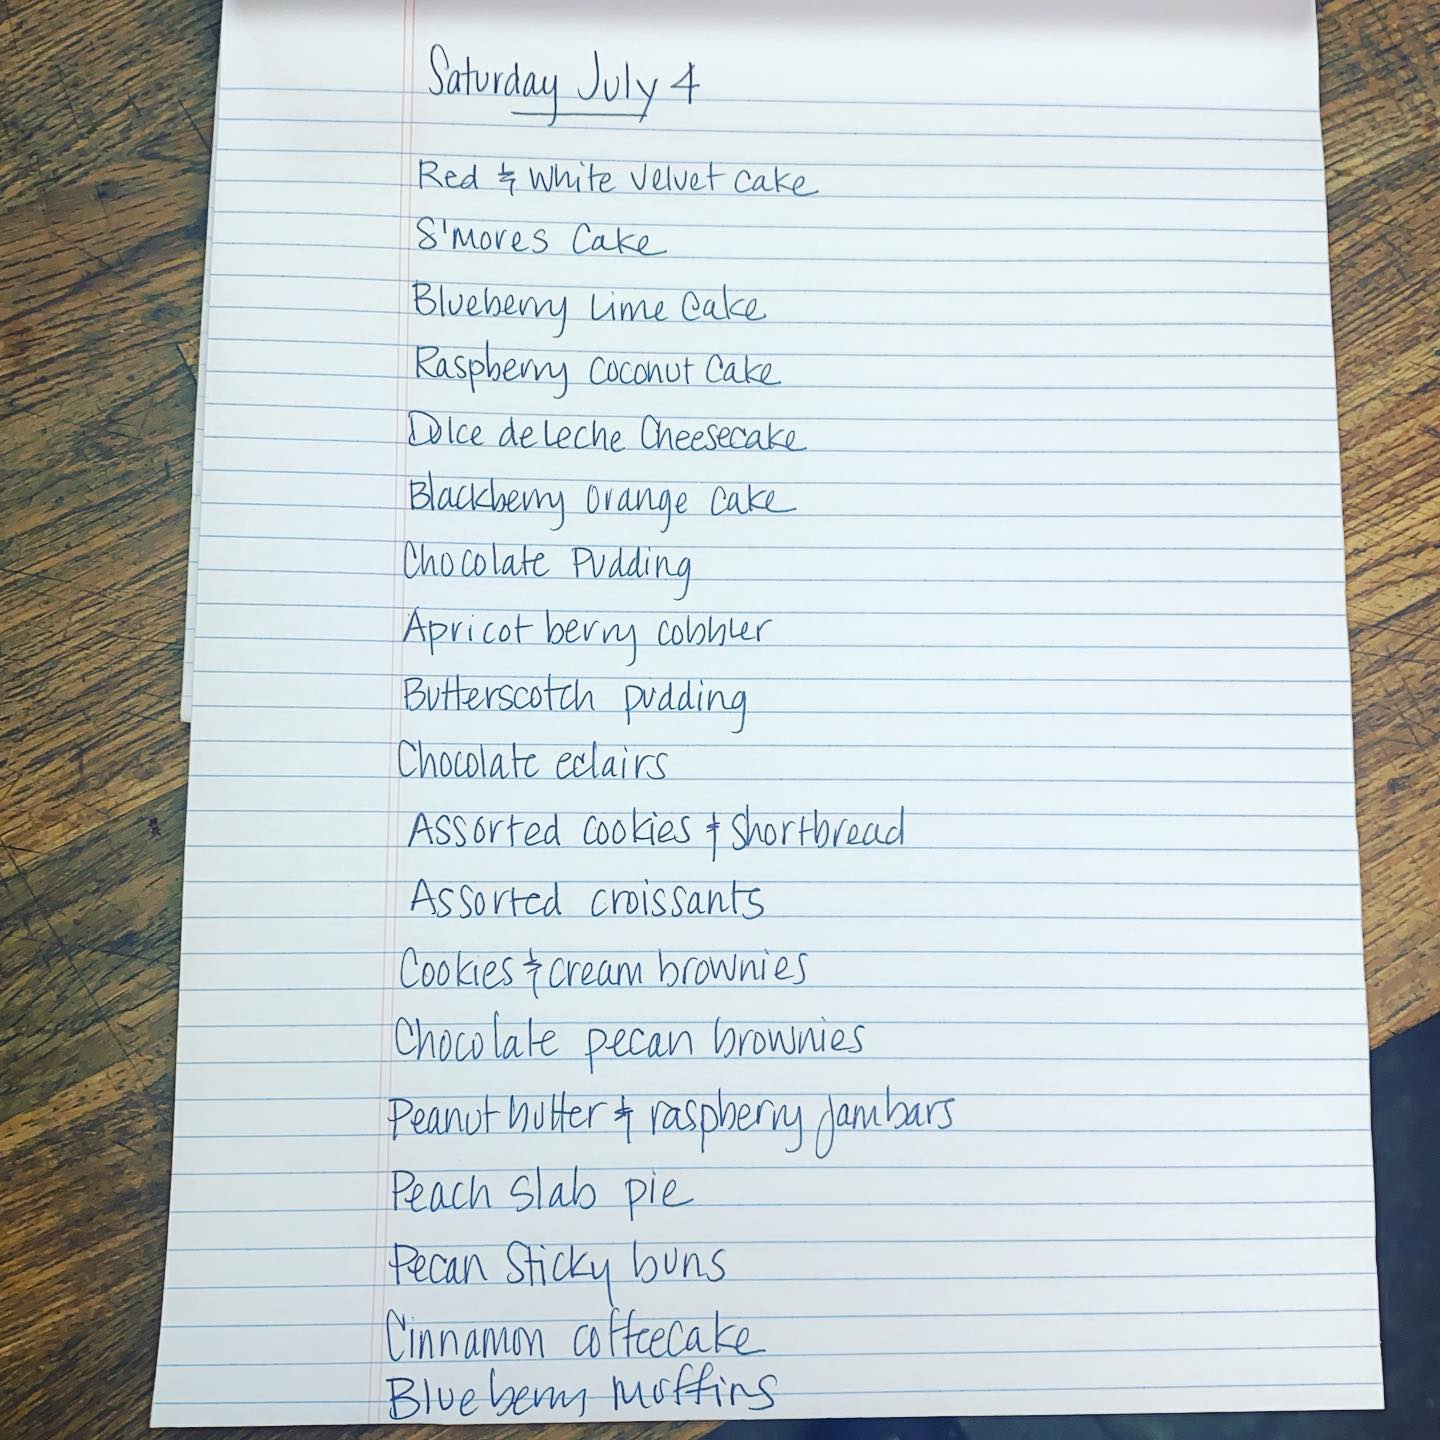 Saturday July 4
Red & White Velvet Cake
S'mores Cake
Blueberry Lime Cake
Raspberry Coconut Cake
Dulce de Leche Cheesecake
Blackberry Orange Cake
Chocolate Pudding
Apricot berry cobbler
Butterscotch pudding
Chocolate eclairs
Assorted cookies & shortbread
Assorted croissants
Cookies & cream brownies
Chocolate pecan brownies
Peanut butter & raspberry jam bars
Peach slab pie
Pecan Sticky buns
Cinnamon coffeecake
Blueberry Muffins